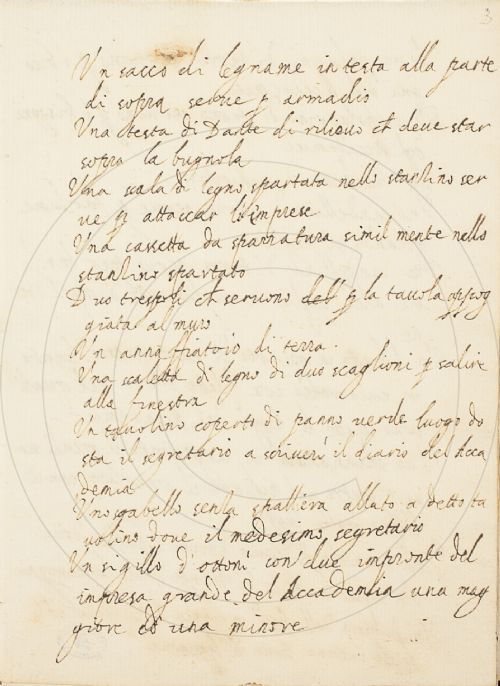 3
Un sacco di legname in testa alla parte
di sopra serue p armadio
Una testa di Dante di rilieuo ch deue star
sopra la bugnola
Una scala di legno spartata nello stanzino ser
ue p attaccar l'imprese
Una cassetta da spazzatura simil mente nello
stanzino spartato
Duo trespoli ch seruono dell' p la tauola appog
giata al muro
Un annaffiatoio di terra.
Una scaletta di legno di duo scaglioni p salire
alla finestra
Un tauolino coperto di panno uerde luogo do
sta il segretario a scriuer' il diario del Acca
demia
Uno sgabello senza spalliera allato a detto ta
uolino doue il medesimo segretario
Un sigillo d'ottoni con due impronte del
impresa grande del Accademia una mag
giore ed una minore